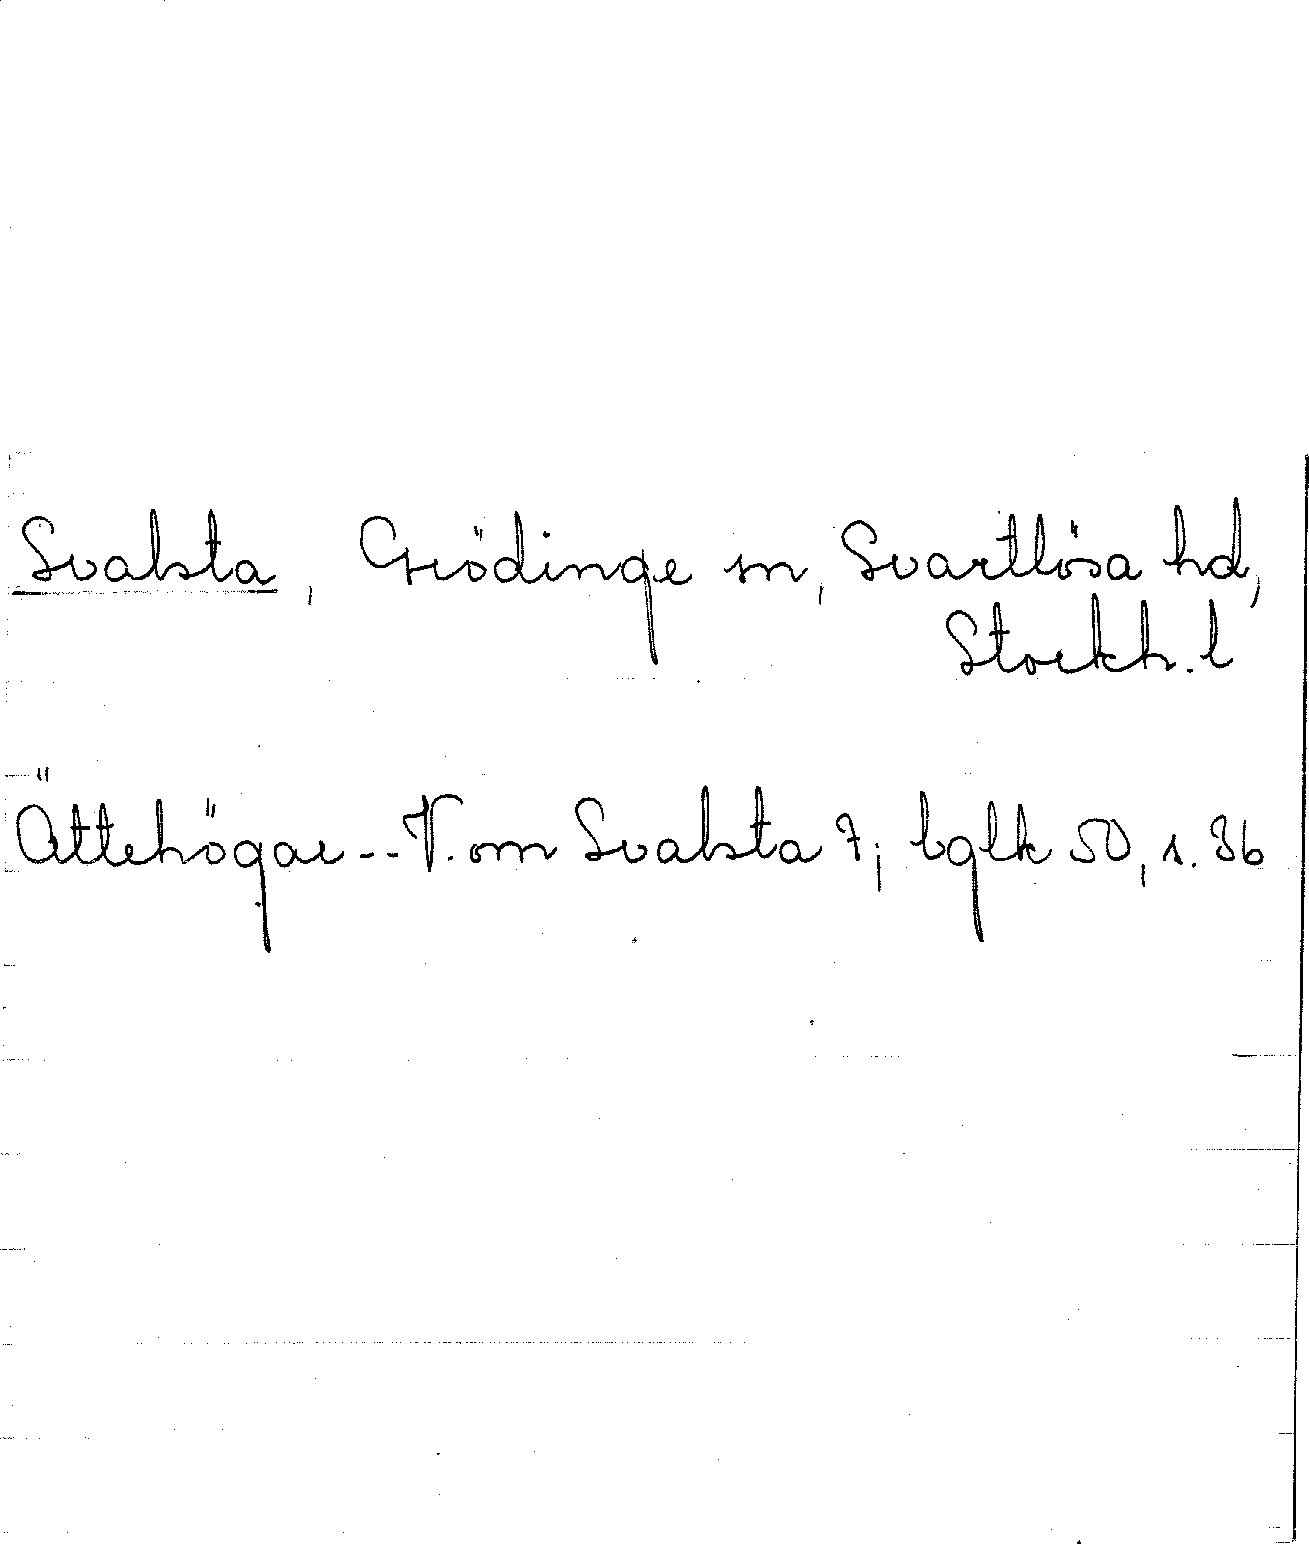 Svalsta, Grödinge sn, Svartlösa hd,
Stockh. l
Ättehögar -- V. om Svalsta 7; bglk 50, s. 36